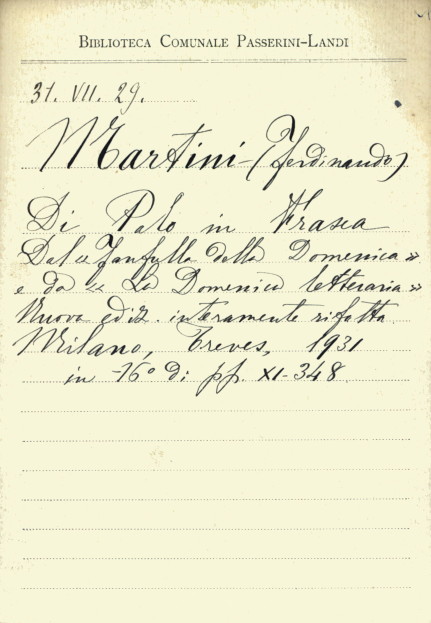 BIBLIOTECA COMUNALE PASSERINI-LANDI
31. VII. 29.
Martini - (Ferdinando)
Di Palo in Frasca
Dal « Fanfulla della Domenica »
e da « La Domenica letteraria »
Nuova ediz. interamente rifatta
Milano, Treves, 1931
in -16° di pp. XI-348